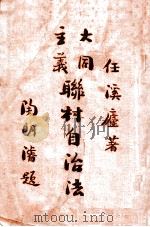 任溪廬著
大同
主義
聯村自治法
陶明濬題